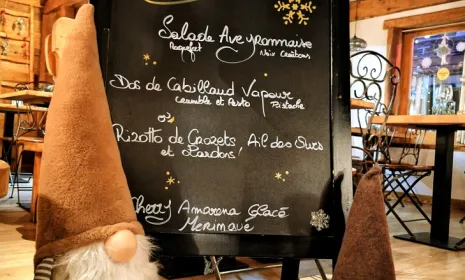 Salade Aveyronnaise
Roquefort Noix Croûtons
Dos de Cabillaud Vapeur
Crumble et Pesto Pistache
ou
Rizotto de Crozets Ail des Ours
et Lardons!
Cherry Amarena Glacé
Meringué